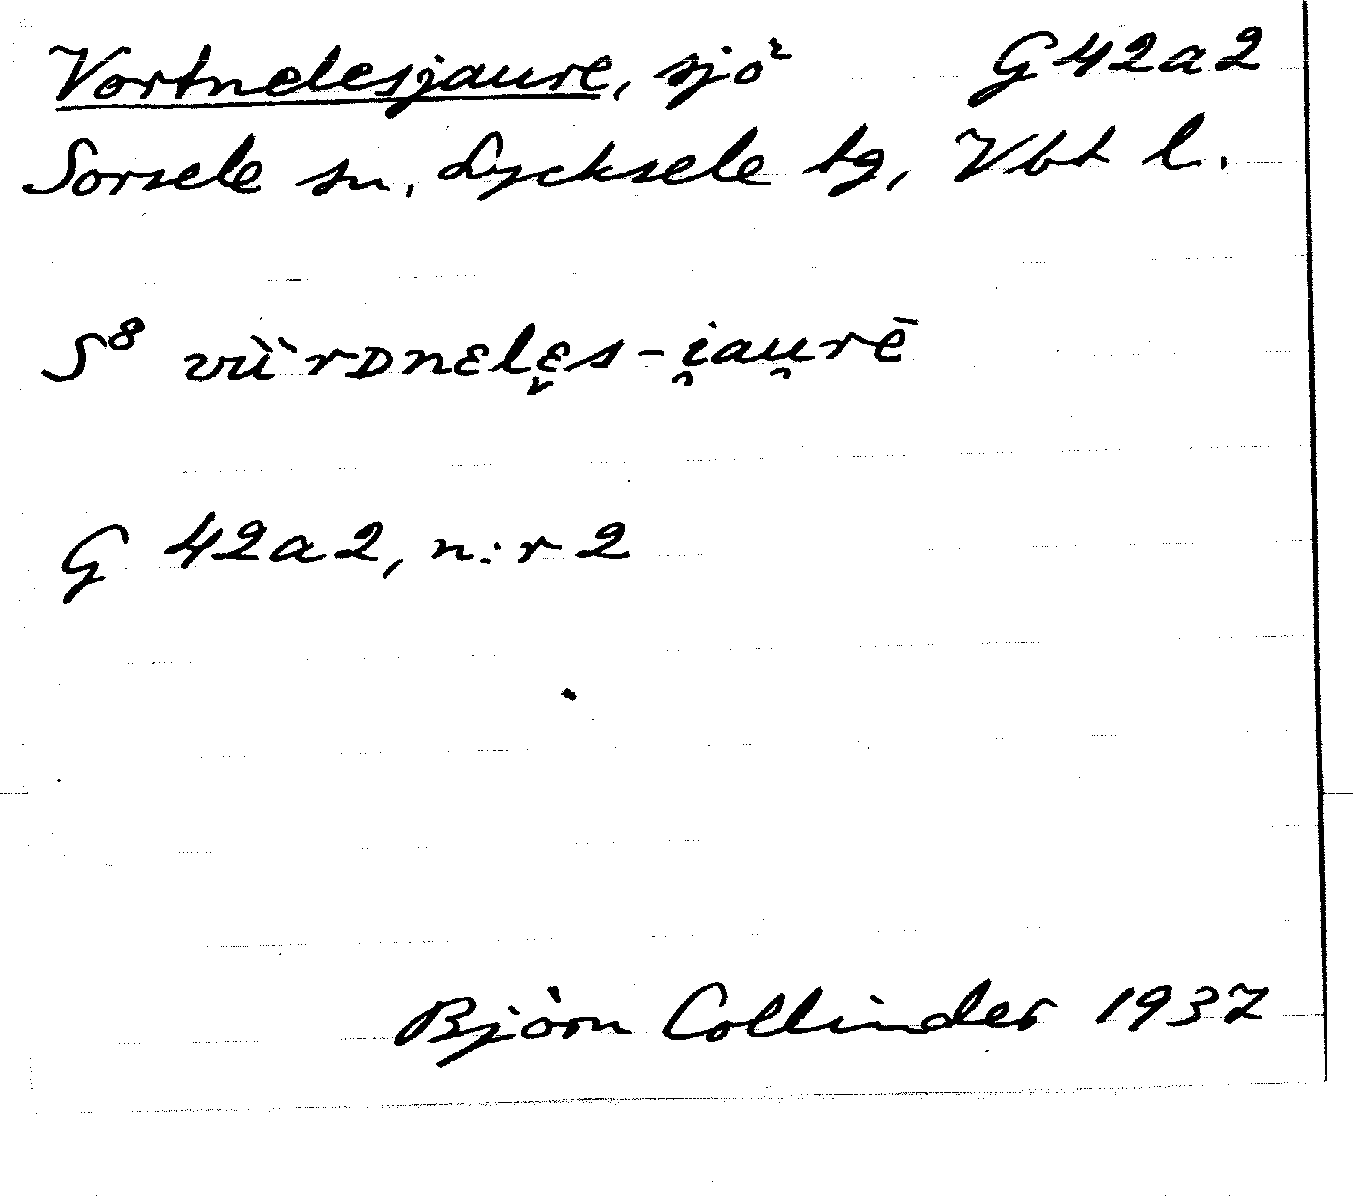 Vortnelesjaure, sjö G42a2
Sorsele sn, Lycksele tg, Vbt l.
S⁸ vùˋrDnεlε̬s-i̯au̯rē
G 42a2, n:r 2
Björn Collinder 1937